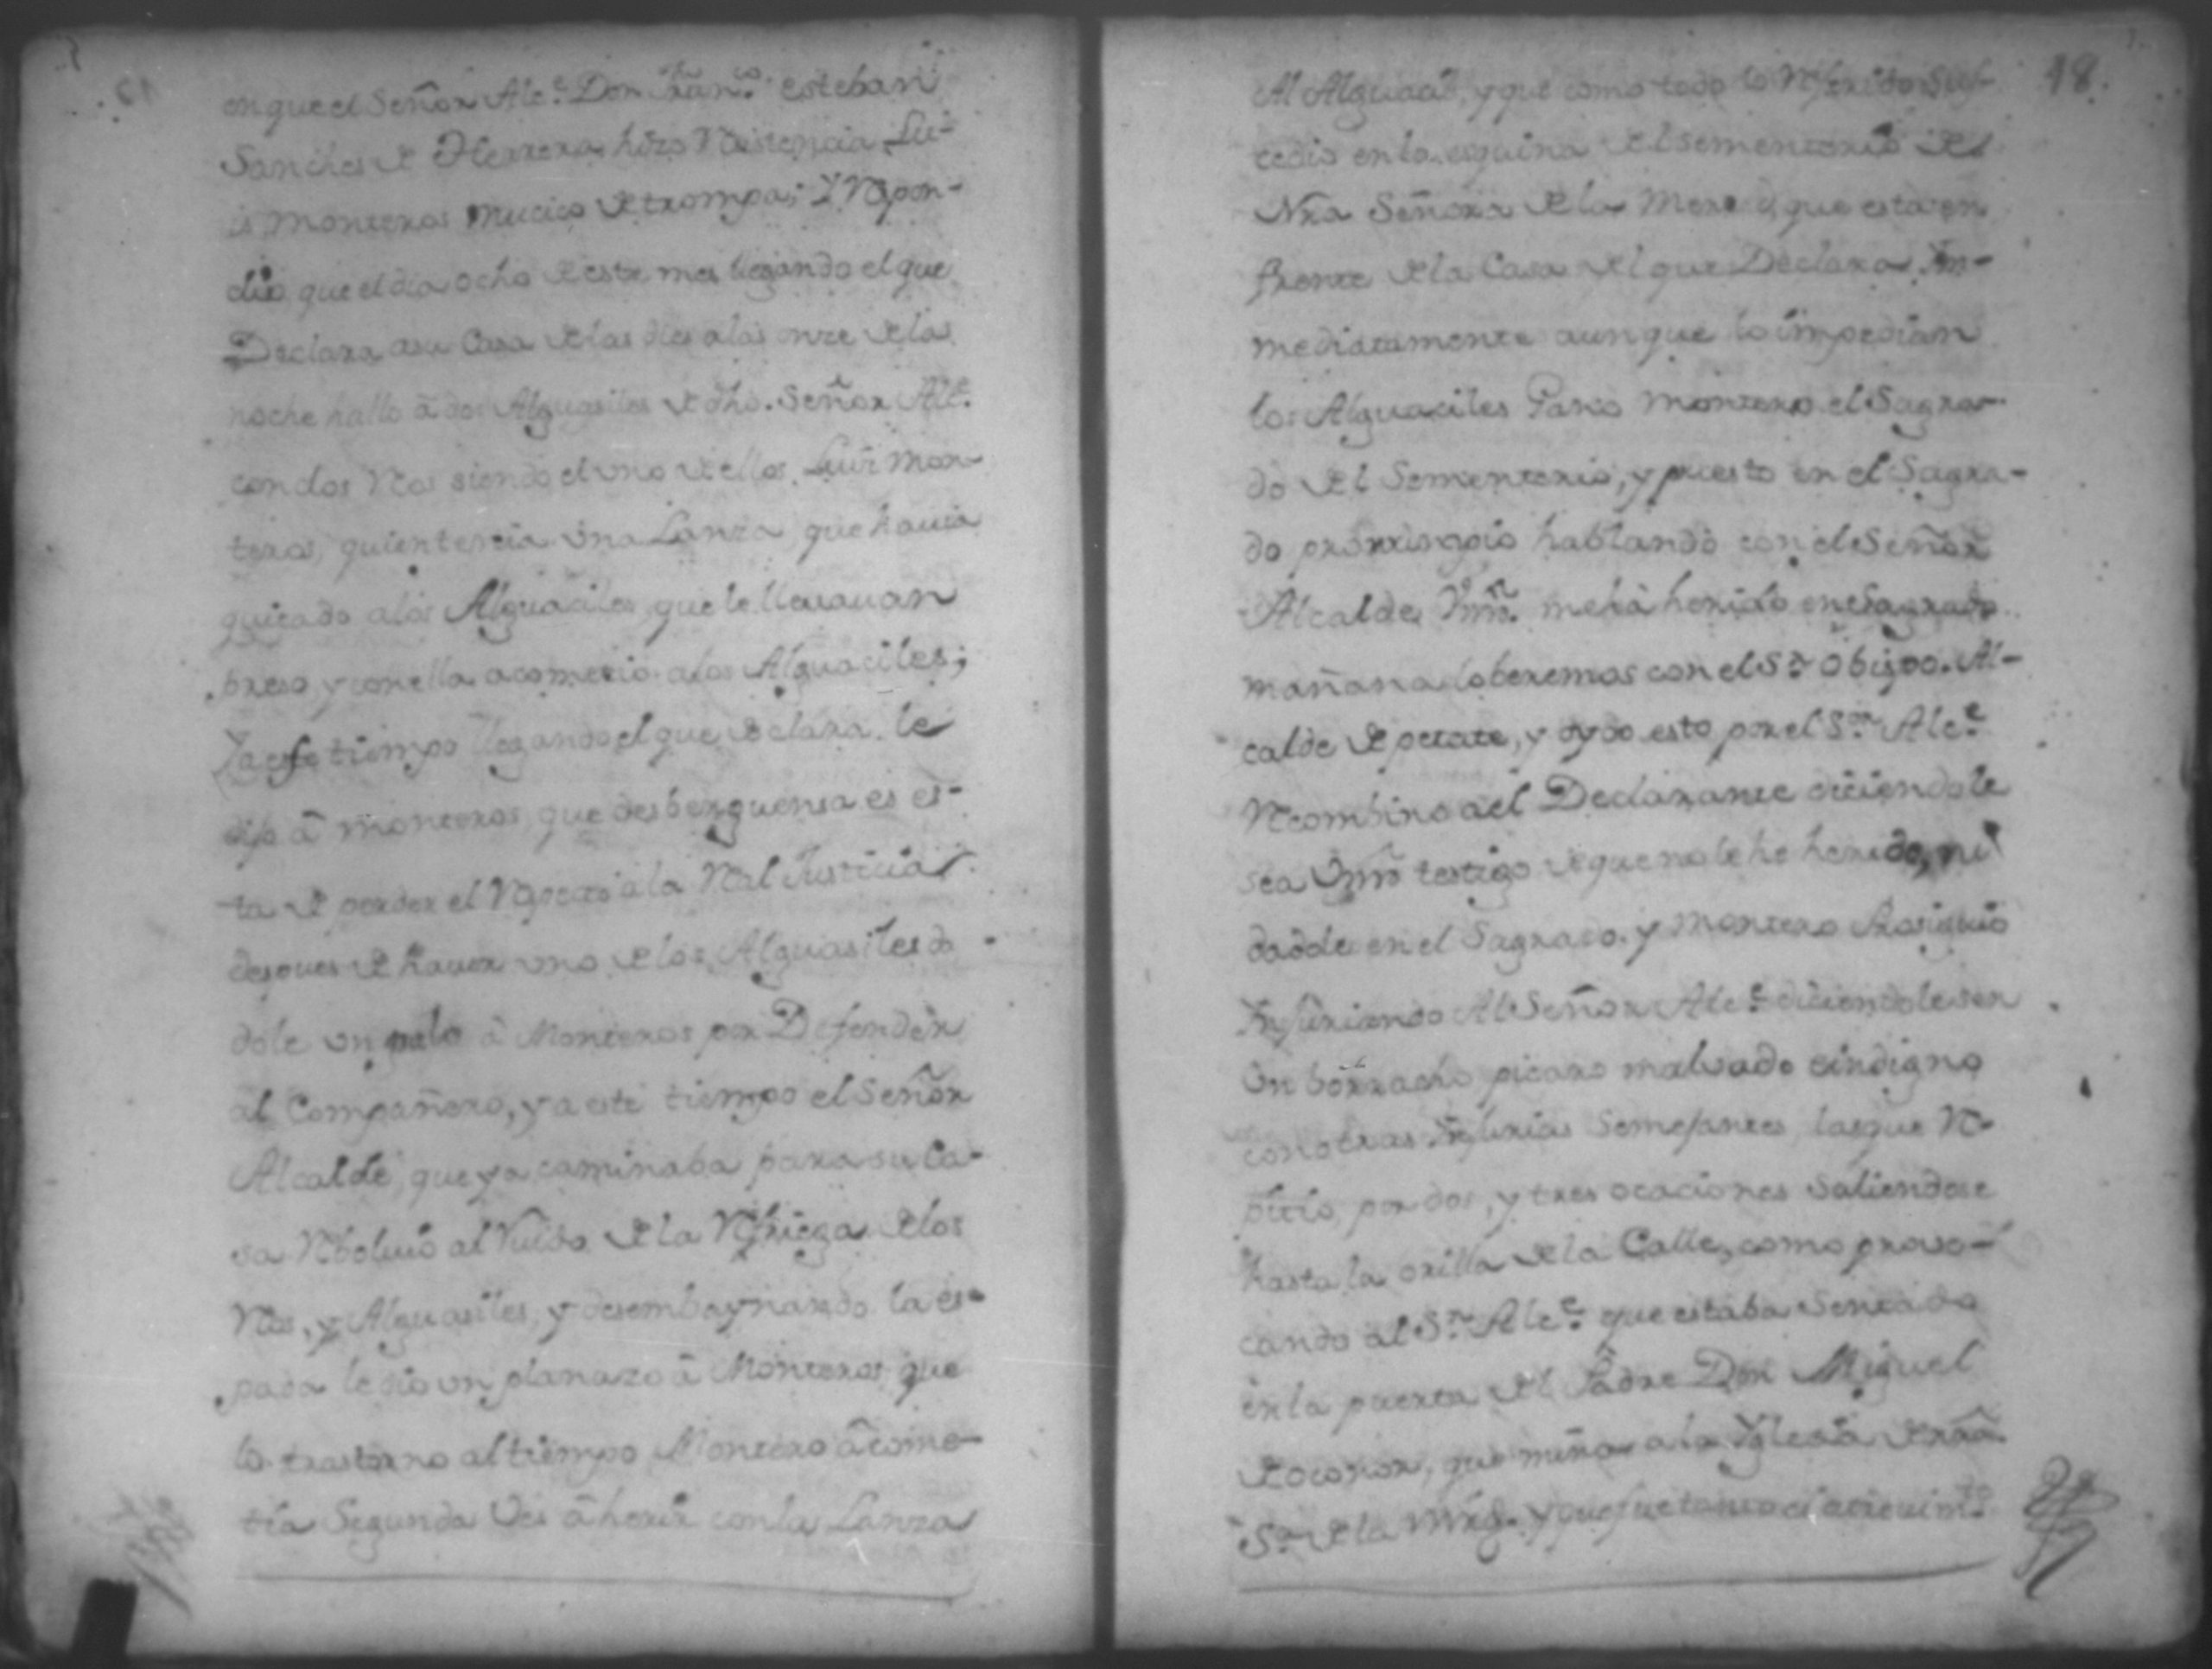 en que el Señor Alc.e Don Fran.co esteban
Sanches de Herrera hizo Resistencia Lu-
is Monteros Mucico de trompa; Y Respon-
dio que el dia ocho de este mes llegando el que
Declara a su Casa de las dies a las onze de la
noche hallo â dos Alguasiles de dho. Señor Alc.e
con dos Reos siendo el uno de ellos Luis Mon-
teros, quien tenia una Lanza, que hauia
quitado a los Alguaciles, que le lleuauan
preso, y con ella acometio a los Alguaciles;
Y a este tiempo llegando el que declara le
dijo â Monteros, que desberguensa es es-
ta de perder el Respecto a la Real Justicia
despues de hauer uno de los Alguasiles da
dole un palo â Monteros por Defender
al Compañero, y a este tiempo el Señor
Alcalde, que ya caminaba para su Ca-
sa Rebolvio al Ruido de la Refriega de los
Reos, y Alguasiles, y desembaynando la es-
pada le dio un planazo â Monteros que
lo trastorno al tiempo Montero âcome-
tia Segunda Ves â herir con la Lanza
18.
Al Alguacil, y que como todo lo Referido Suc-
cedio en la esquina del Sementerio de
Nra Señora de la Merced, que esta en
frente de la Casa del que Declara Ym-
mediatamente aunque lo impedian
los Alguaciles Gano Montero el Sagra-
do del Sementerio, y puesto en el Sagra-
do prorrumpio hablando con el Señor
Alcalde Vm. me hà herido en Sagrado
mañana lo beremos con el S.r Obispo. Al-
calde de petate, y oydo esto por el S.or Alc.e
Recombino a el Declarante diciendole
sea Vm testigo de que no le he herido, ni
dadole en el Sagrado. y Montero Prosiguio
Ynjuriando Al Señor Alc.e diciendole ser
Un borracho picaro malvado e indigno
con otras Ynjurias Semejantes, las que Re-
pitio por dos, y tres ocaciones saliendose
hasta la orilla de la Calle, como provo-
cando al S.or Alc.e que estaba Sentado
en la puerta del Padre Don Miguel
de oconor, que mira a la Yglesia de nrâ
S.a de la Mrd. y que fue tanto el atreuim.to